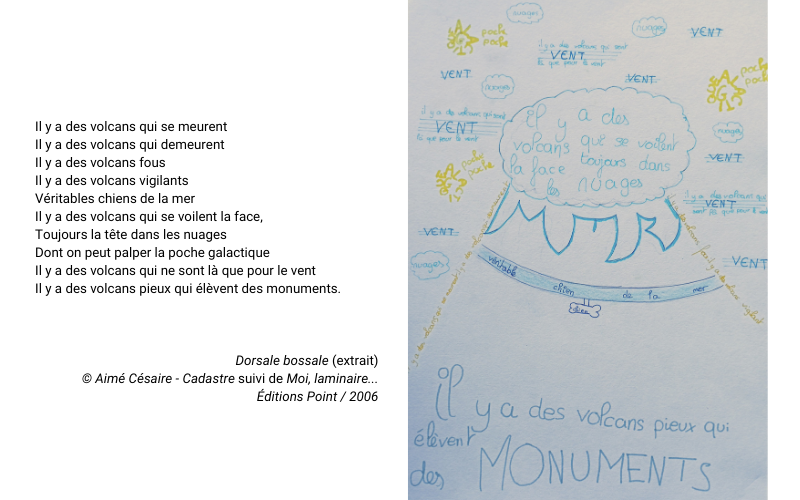 Il y a des volcans qui se meurent
Il y a des volcans qui demeurent
Il y a des volcans fous
Il y a des volcans vigilants
Véritables chiens de la mer
Il y a des volcans qui se voilent la face,
Toujours la tête dans les nuages
Dont on peut palper la poche galactique
Il y a des volcans qui ne sont là que pour le vent
Il y a des volcans pieux qui élèvent des monuments.
Dorsale bossale (extrait)
© Aimé Césaire - Cadastre suivi de Moi, laminaire...
Éditions Point / 2006
nuages
poche
poche
nuages
VENT
il y a des volcans qui sont
VENT
là que pour le vent
VENT
VENT
poche
poche
nuages
il y a des volcans qui sont
VENT
que pour le vent
il y a des
volcans qui se voilent
la face toujours dans
les nuages
nuages
VENT
poche
poche
il y a des volcans qui
VENT
sont là que pour le vent
VENT
VENT
nuages
véritable chien de la mer
il y a des volcans pieux qui
élèvent
des MONUMENTS